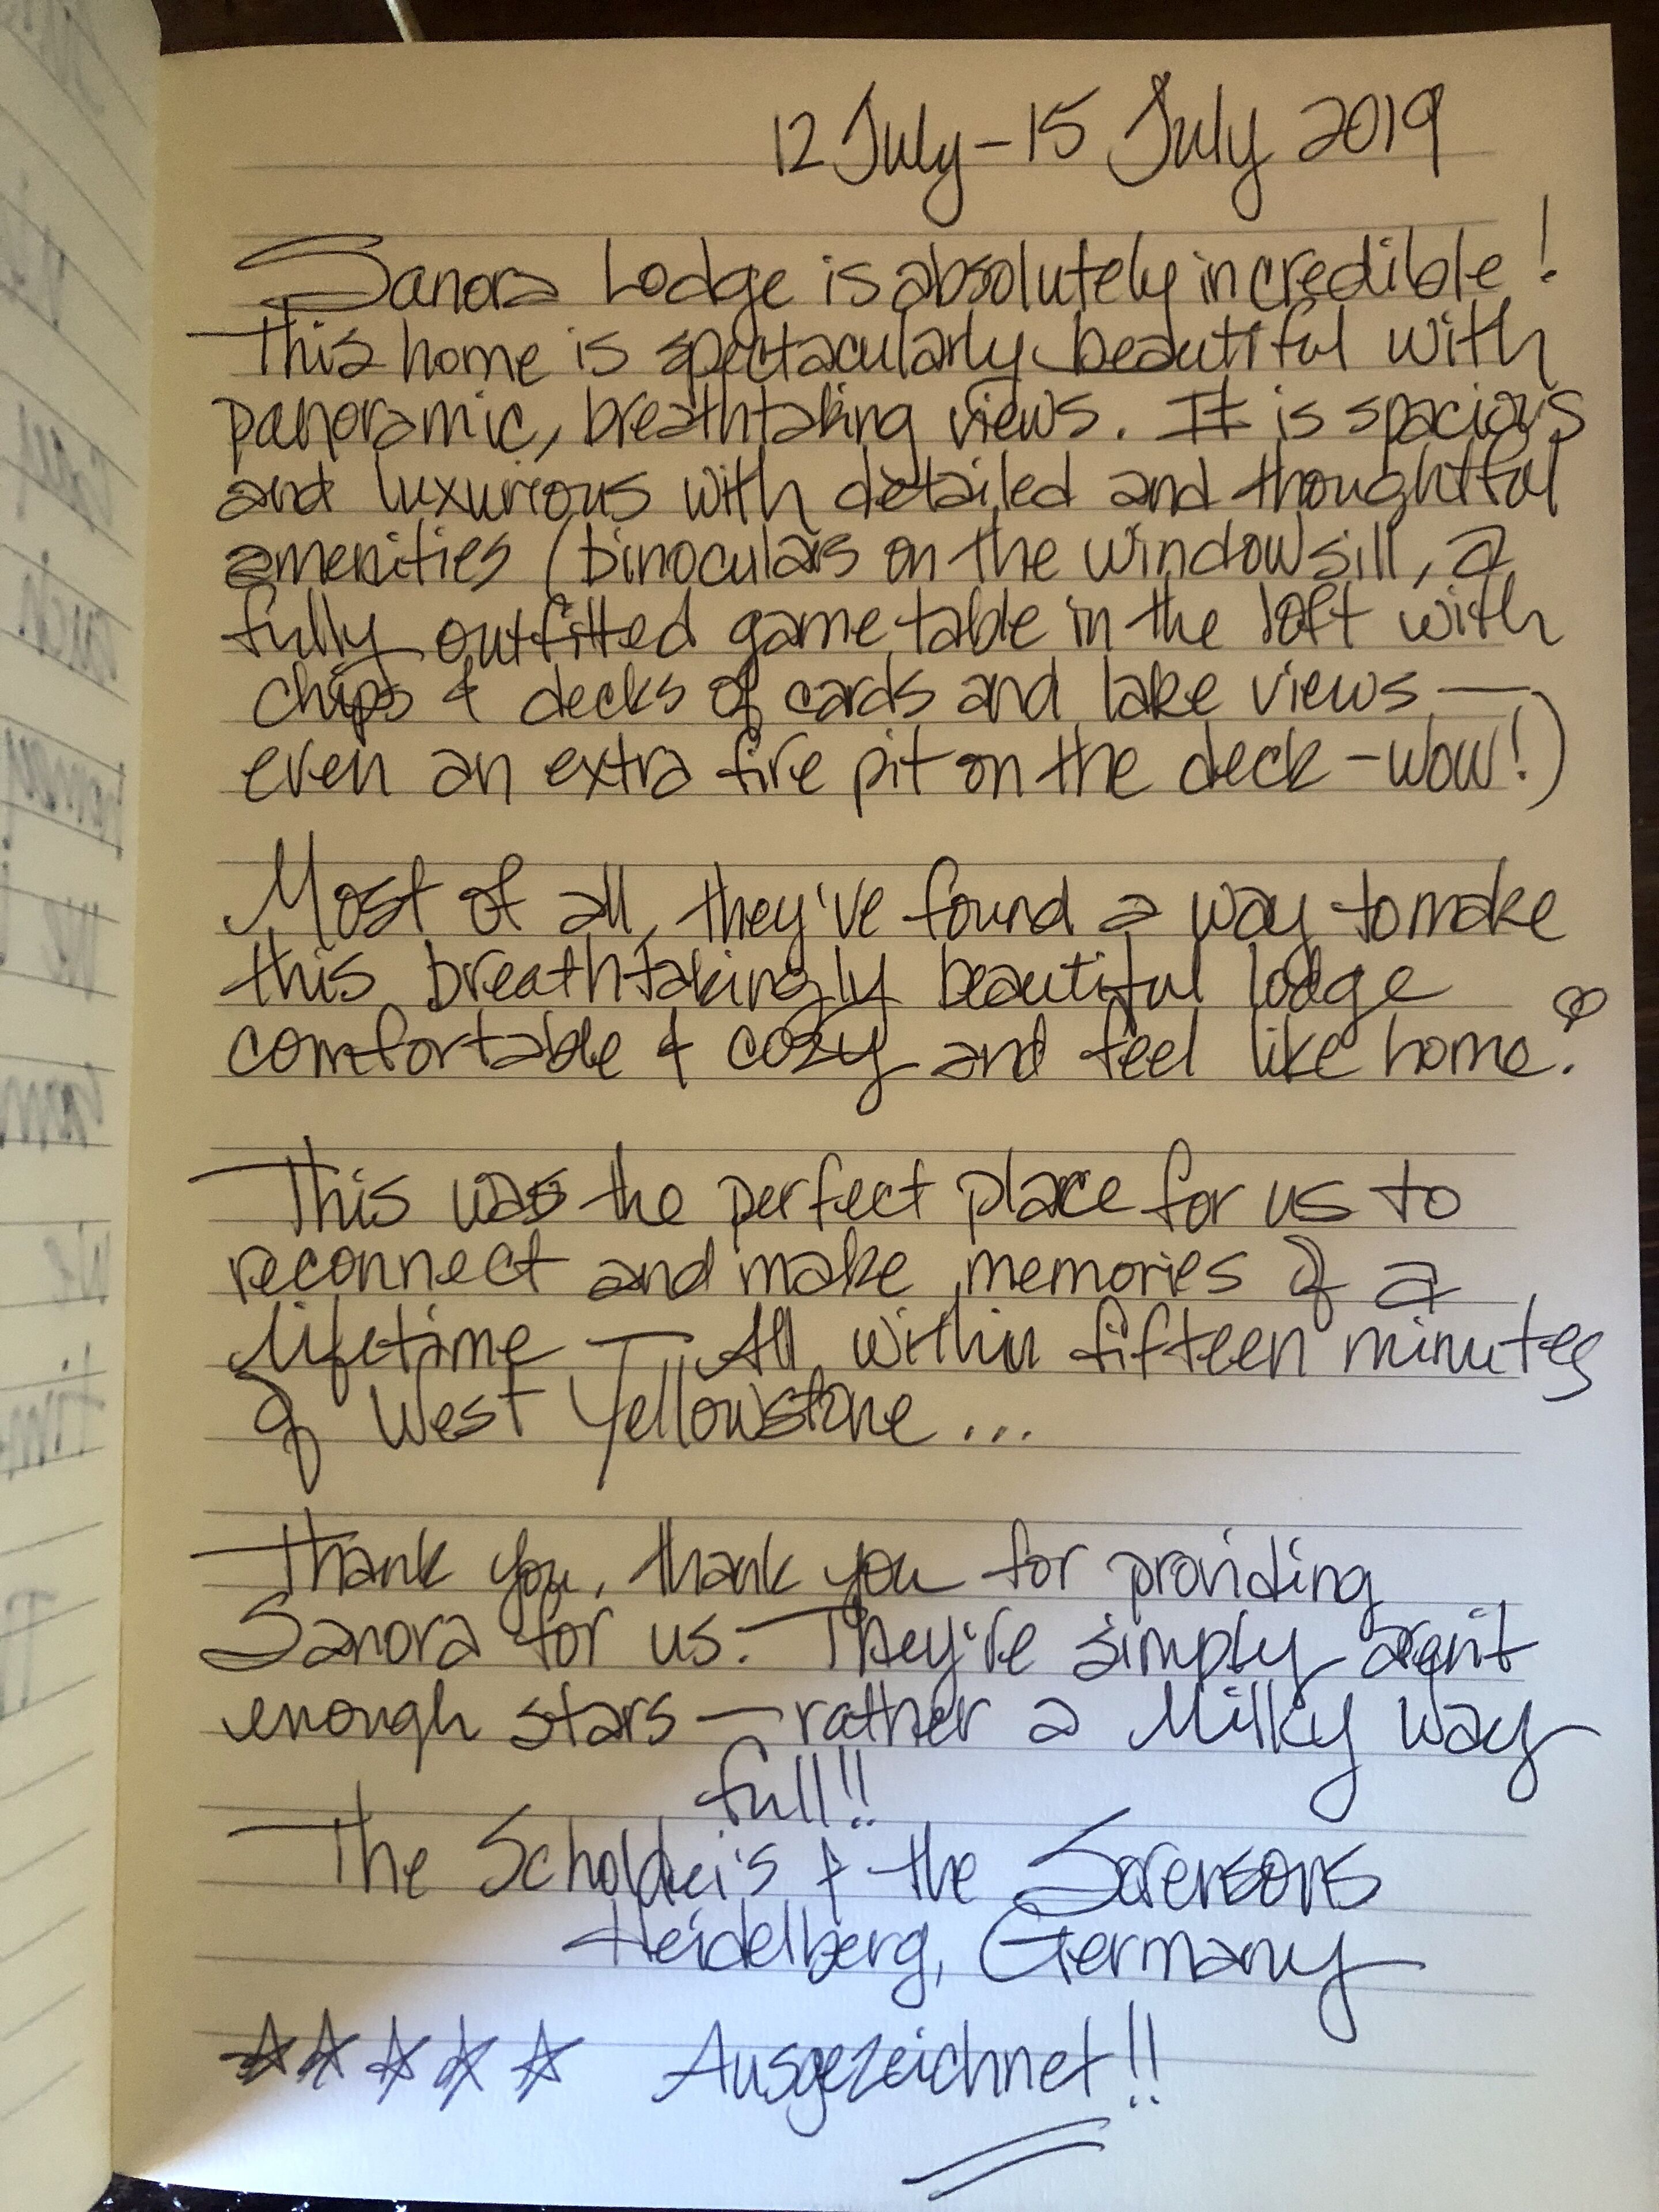 12 July - 15 July 2019
Sanora Lodge is absolutely incredible!
This home is spectacularly beautiful with
panoramic, breathtaking views. It is spacious
and luxurious with detailed and thoughtful
amenities (binoculars on the windowsill, a
fully outfitted game table in the loft with
chips & decks of cards and lake views —
even an extra fire pit on the deck - wow!)
Most of all, they've found a way to make
this breathtakingly beautiful lodge
comfortable & cozy and feel like home.
This was the perfect place for us to
reconnect and make memories of a
lifetime — All within fifteen minutes
of West Yellowstone...
Thank you, thank you for providing
Sanora for us. They're simply aren't
enough stars — rather a Milky Way
full!!
The & the Sorensons
Heidelberg, Germany
Ausgezeichnet!!